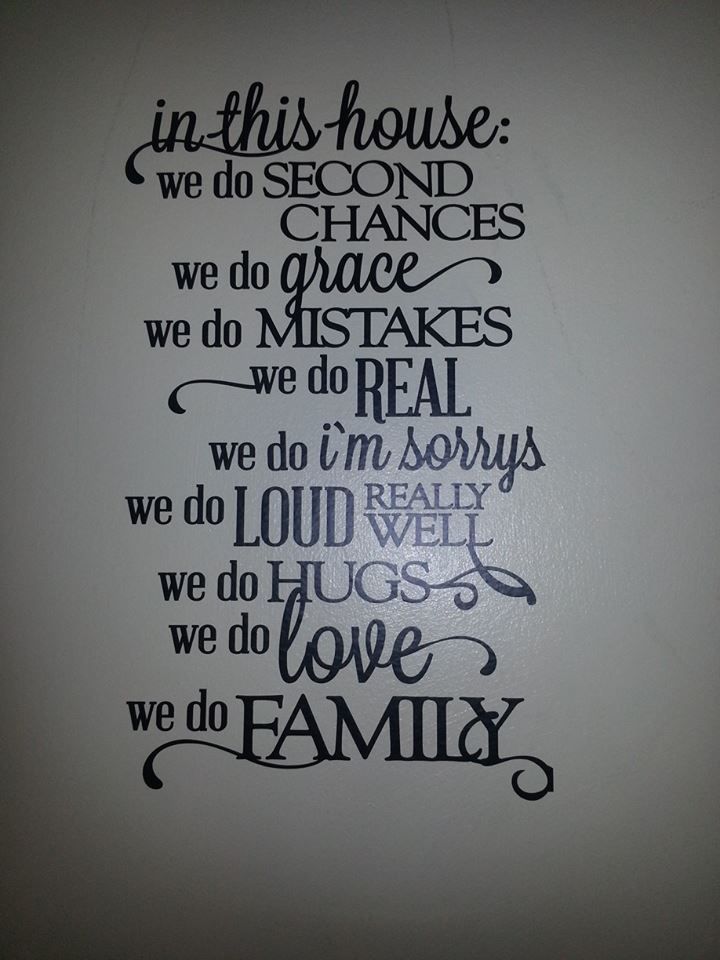 in this house:
we do SECOND
CHANCES
we do grace
we do MISTAKES
we do REAL
we do i`m sorrys
we do LOUD REALLY WELL
we do HUGS
we do love
we do FAMILY